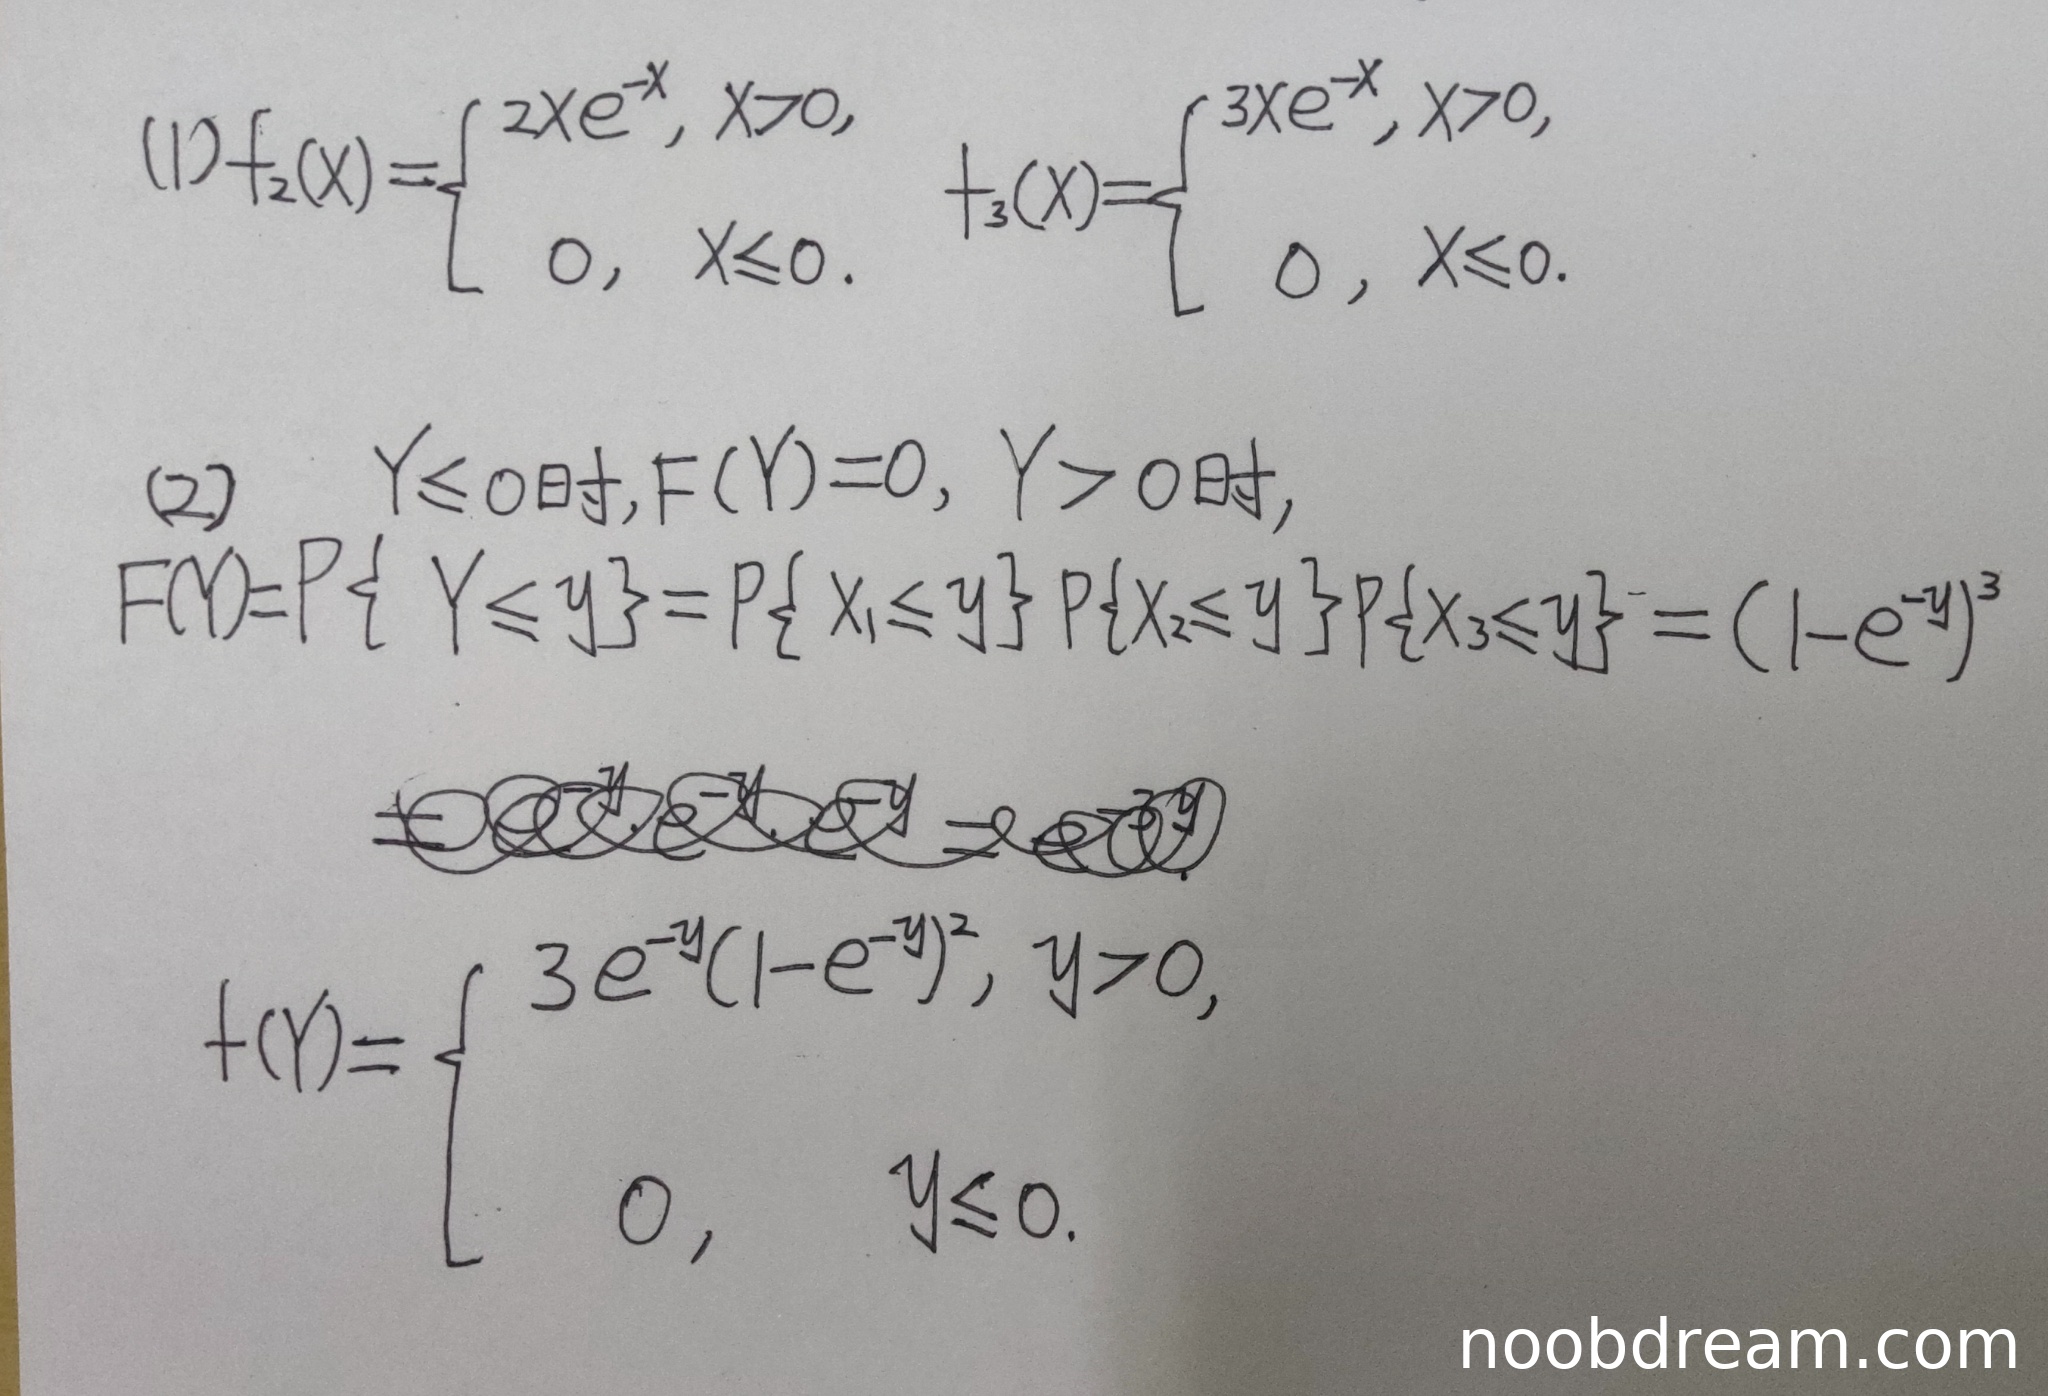 (1) f₂(X)={ 2Xe^{-X}, X>0,
0, X≤0.
f₃(X)={ 3Xe^{-X}, X>0,
0, X≤0.
(2) Y≤0时,F(Y)=0, Y>0时,
F(Y)=P{Y≤y}=P{X₁≤y}P{X₂≤y}P{X₃≤y}=(1-e^{-y})³
f(Y)={ 3e^{-y}(1-e^{-y})², y>0,
0, y≤0.
noobdream.com